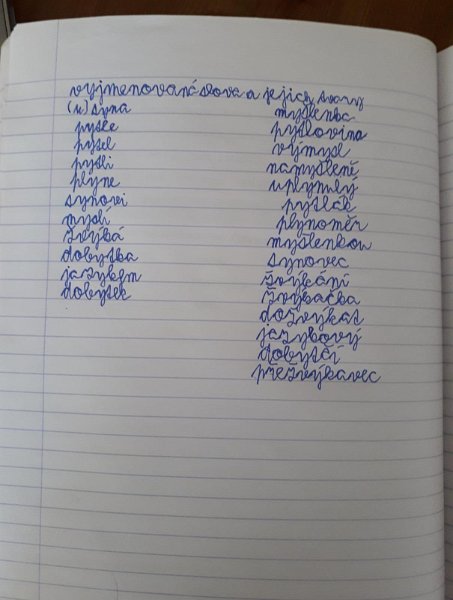 vyjmenovaná slova a jejich tvary
(u) syna
pytle
pytel
pytli
plyne
synovi
myslí
žvýká
dobytka
jazykem
dobytek
myšlenka
pytlovina
výmysl
namyšleně
uplynulý
pytlák
plynoměr
myšlenkou
synovec
žvýkání
žvýkačka
dožvýkat
jazykový
dobytčí
přežvýkavec